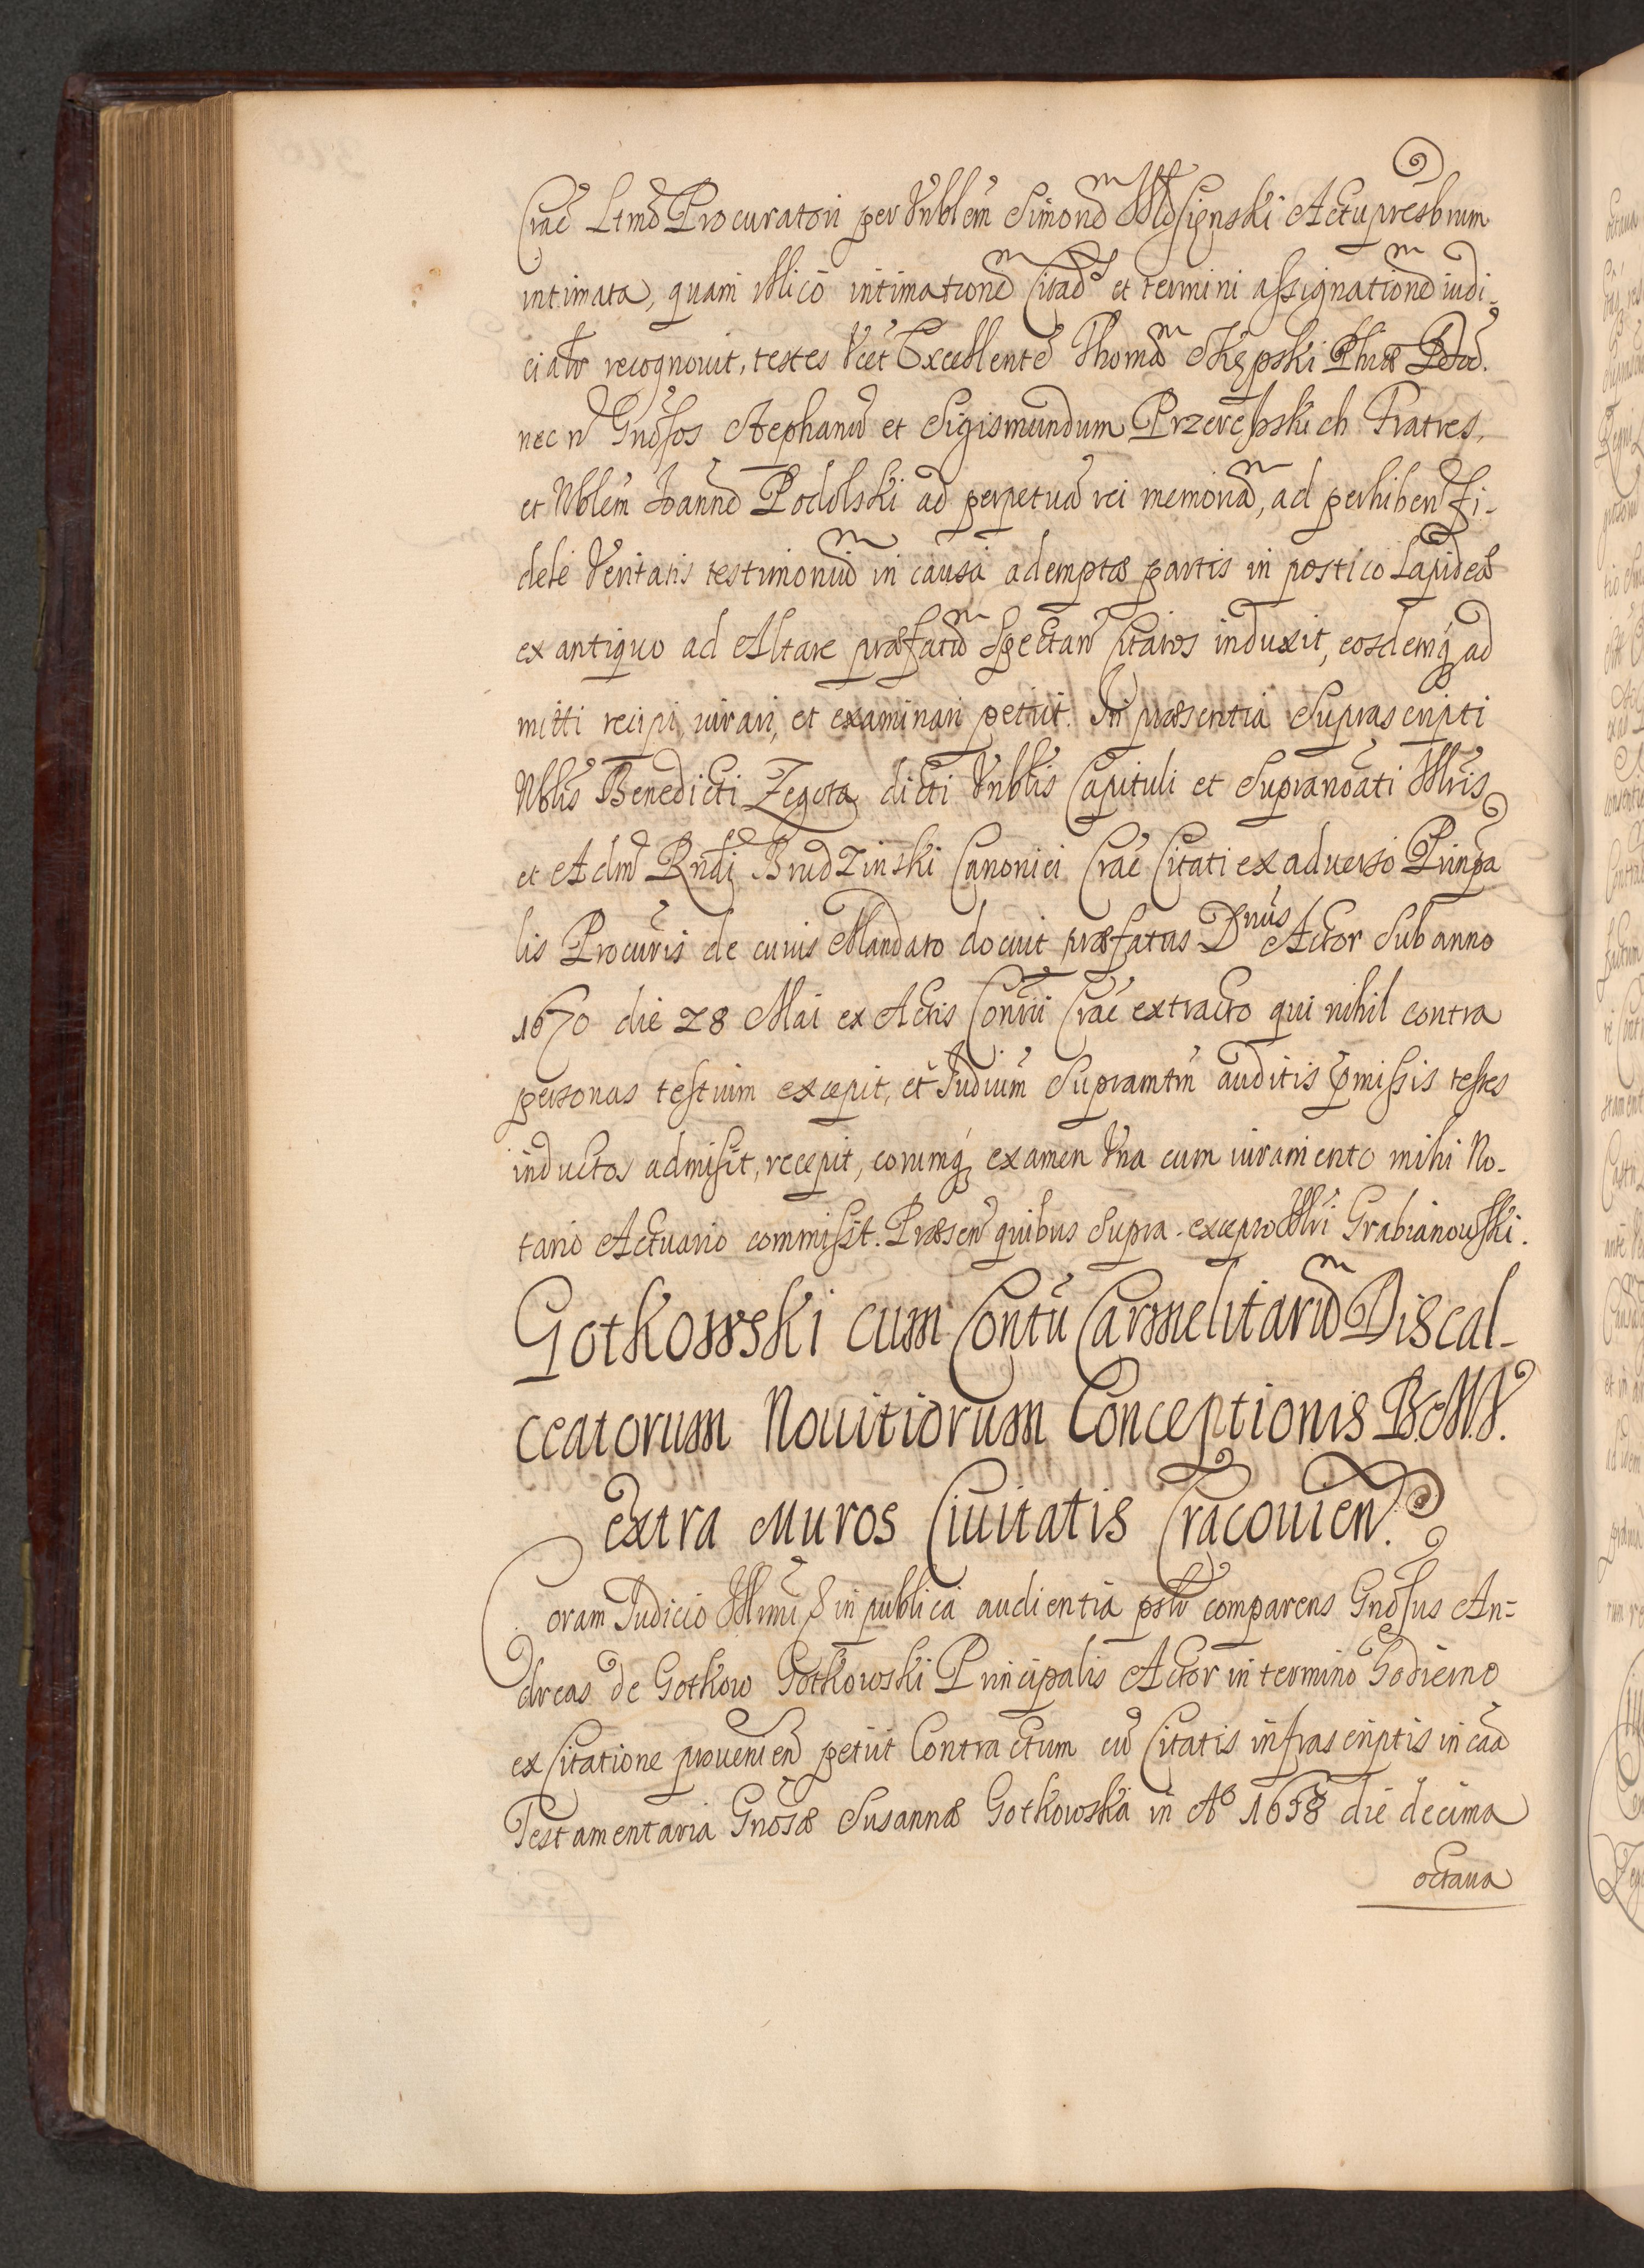 Crac̃ Ltmõ Procuratori per Vnblem̃ Simonẽ Actu presbrum
intimata, quam illico intimationẽ et termini assignationẽ iudi-
recognouit, testes Vcet Excellentẽ Thomã
nec ñ Gnõsos Stephanũ et Sigismundum Fratres,
et Nblem̃ Ioannẽ Podolski ad perpetuã rei memoriã, ad perhiben̄ fi-
dele Veritatis testimoniũ in causa ademptæ partis in postico Lapideæ
ex antiquo ad Altare præfatũ Spectan̄ Citatos induxit, eosdemq; ad
mitti recipi, iurari, et examinari petiit. In præsentia Suprascripti
Nblis̃ Benedicti Zegota dicti Vnblis̃ Capituli et Supranoãti Illris̃
et Adm̃ Rndi Brudzinski Canonici Crac̃ Citati ex aduerso Prinpa
lis Procuris̃ de cuius Mandato docuit præfatus Dnus Actor Sub anno
1670 die 28 Mai ex Actis Conrii Crac̃ extracto qui nihil contra
personas testium excepit, et Iudium̃ Supramtm̃ auditis p̃missis testes
inductos admisit, recepit, eorumq; examen Vna cum iuramento mihi No-
tario Actuario commisit. Præsen̄ quibus Supra excepto Illri Grabianowski.
Gotkowski cum Contũ Carmelitarũ Discal-
ceatorum Nouitiorum Conceptionis B.M.V.
extra Muros Ciuitatis Cracouien̄.
Coram Iudicio Illmi & in publica audientia comparens Gnõsus An=
dreas de Gotkow Gotkowski Principalis Actor in termino hodierno
ex Citatione prouenien̄ petiit Contractum cũ Citatis infrascriptis in cãa
Testamentaria Gnõsæ Susannæ Gotkowska in Aº 1658 die decima
octaua